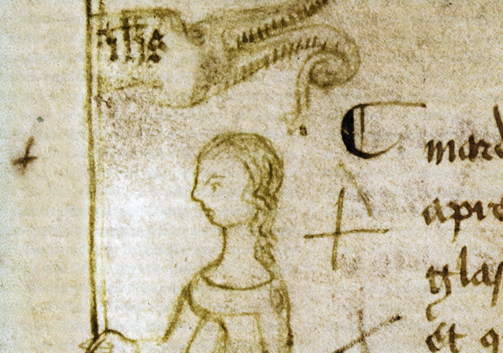 ihs
C
mard
apre
glas
et q